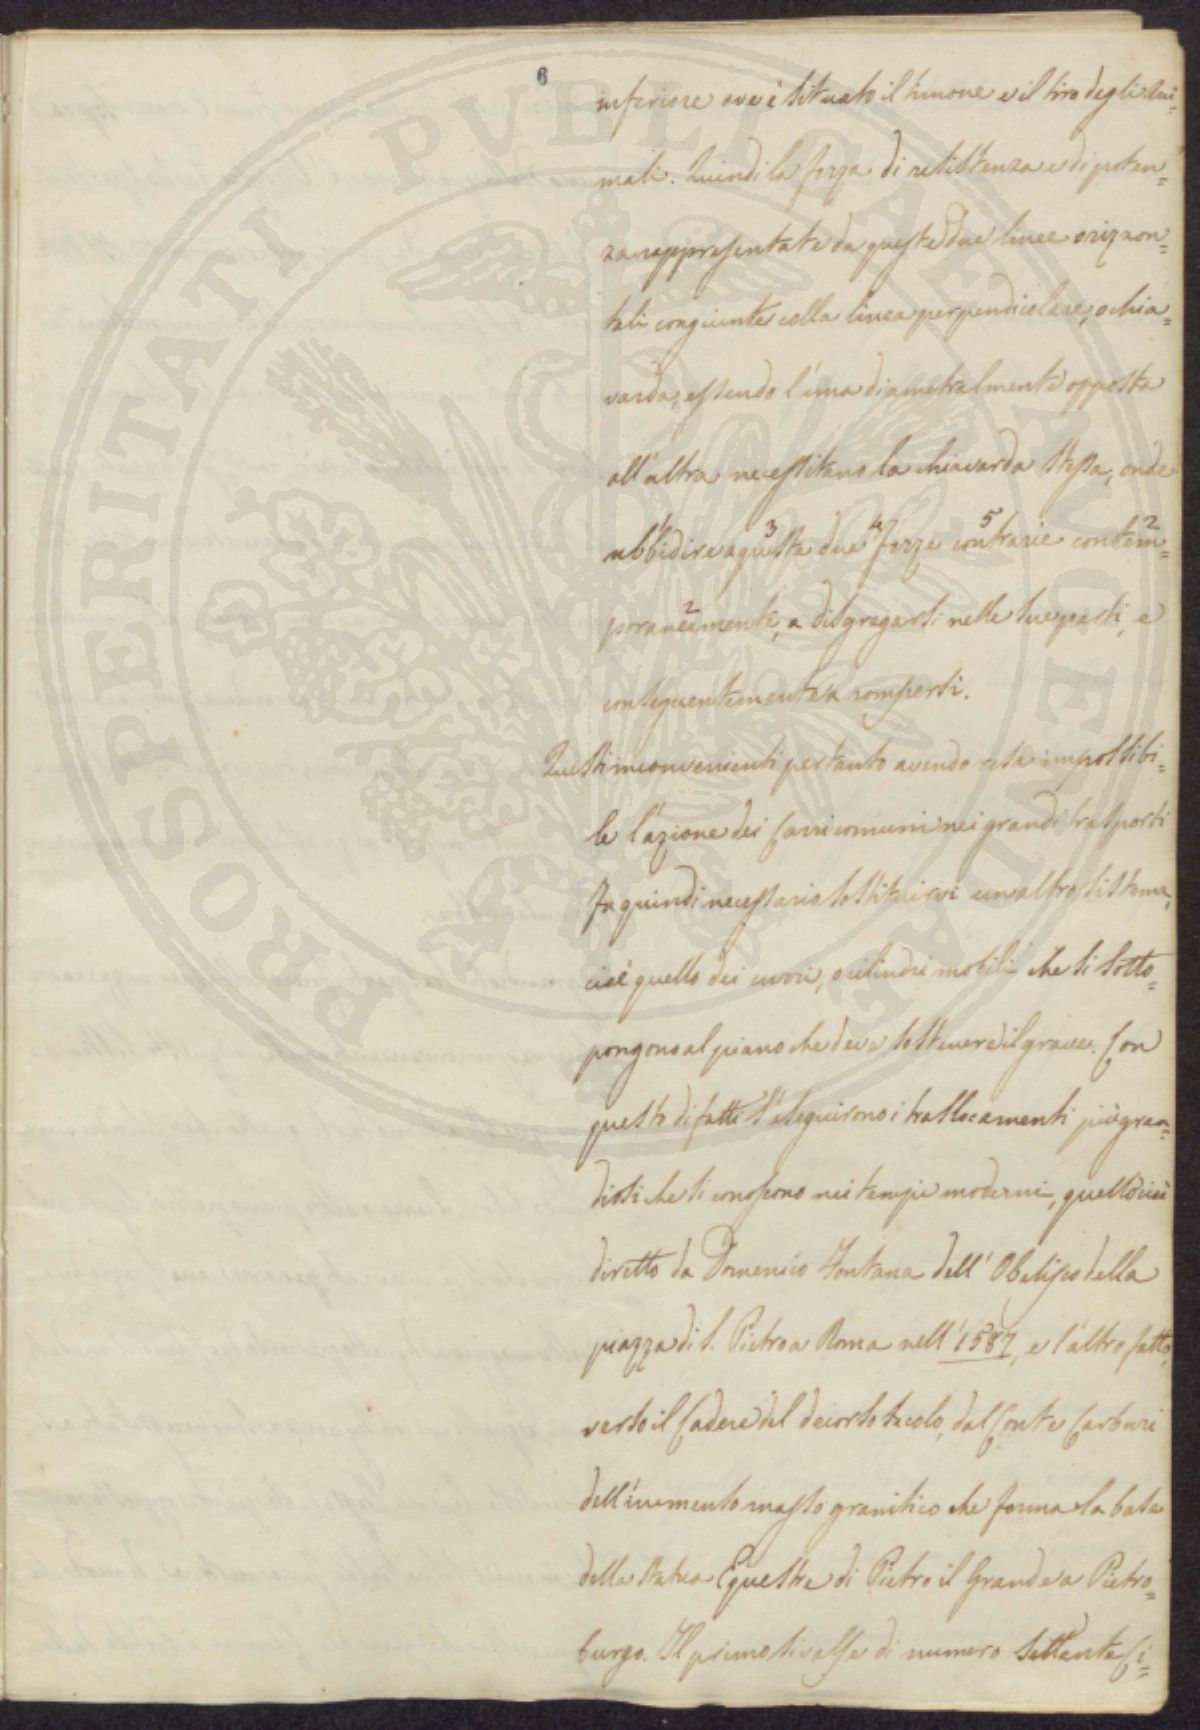 6
inferiore ove è situato il timone e il tiro degli Ani=
mali. Quindi la forza di resistenza e di poten=
za rappresentate da queste due linee orizzon=
tali congiunte colla linea perpendicolare, o chia=
varda, essendo l'una diametralmente opposta
all'altra necessitano la chiavarda stessa, onde
ubbidire a queste 3 due 4 forze contrarie 5 contem= 2
poraneamente 2, a disgregarsi nelle sue parti, e
conseguentemente a rompersi.
Questi inconvenienti pertanto avendo resa impossibi=
le l'azione dei Carri comuni nei grandi trasporti
fu quindi necessario sostituirvi un altro sistema,
cioè quello dei curri, o cilindri mobili che si sotto=
pongono al piano che deve sostenere il grave. Con
questo di fatti s'eseguirono i traslocamenti più gran=
diosi che si conoscono nei tempi moderni, quello cioè
diretto da Domenico Fontana dell'Obelisco della
piazza di S. Pietro a Roma nell'1587, e l'altro fatto,
verso il Cadere del decorso secolo, dal Conte Carburi
dell'inmenso masso granitico che forma la base
della statua Equestre di Pietro il Grande a Pietro=
burgo. Il primo si valse di numero settanta Ci=
PROSPERITATI PUBLICAE AUGENDAE